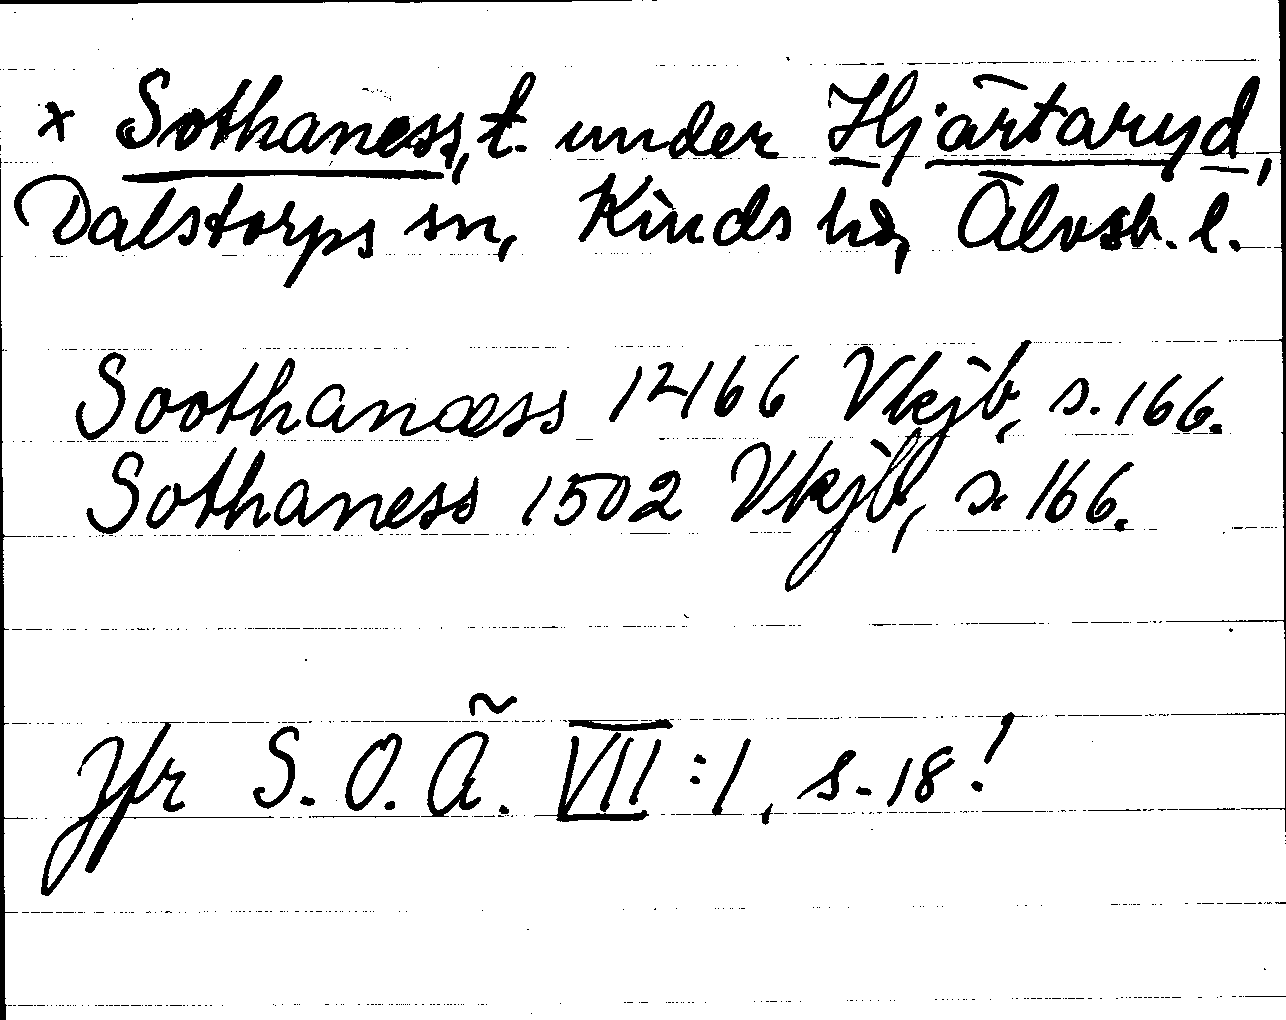 x Sothaness, t. under Hjärtaryd,
Dalstorps sn, Kinds hd, Älvsb. l.
Soothanæss 1466 Vkjb, s. 166.
Sothaness 1502 Vkjb, s. 166.
Jfr S. O. Ä. VII : 1, s. 18!